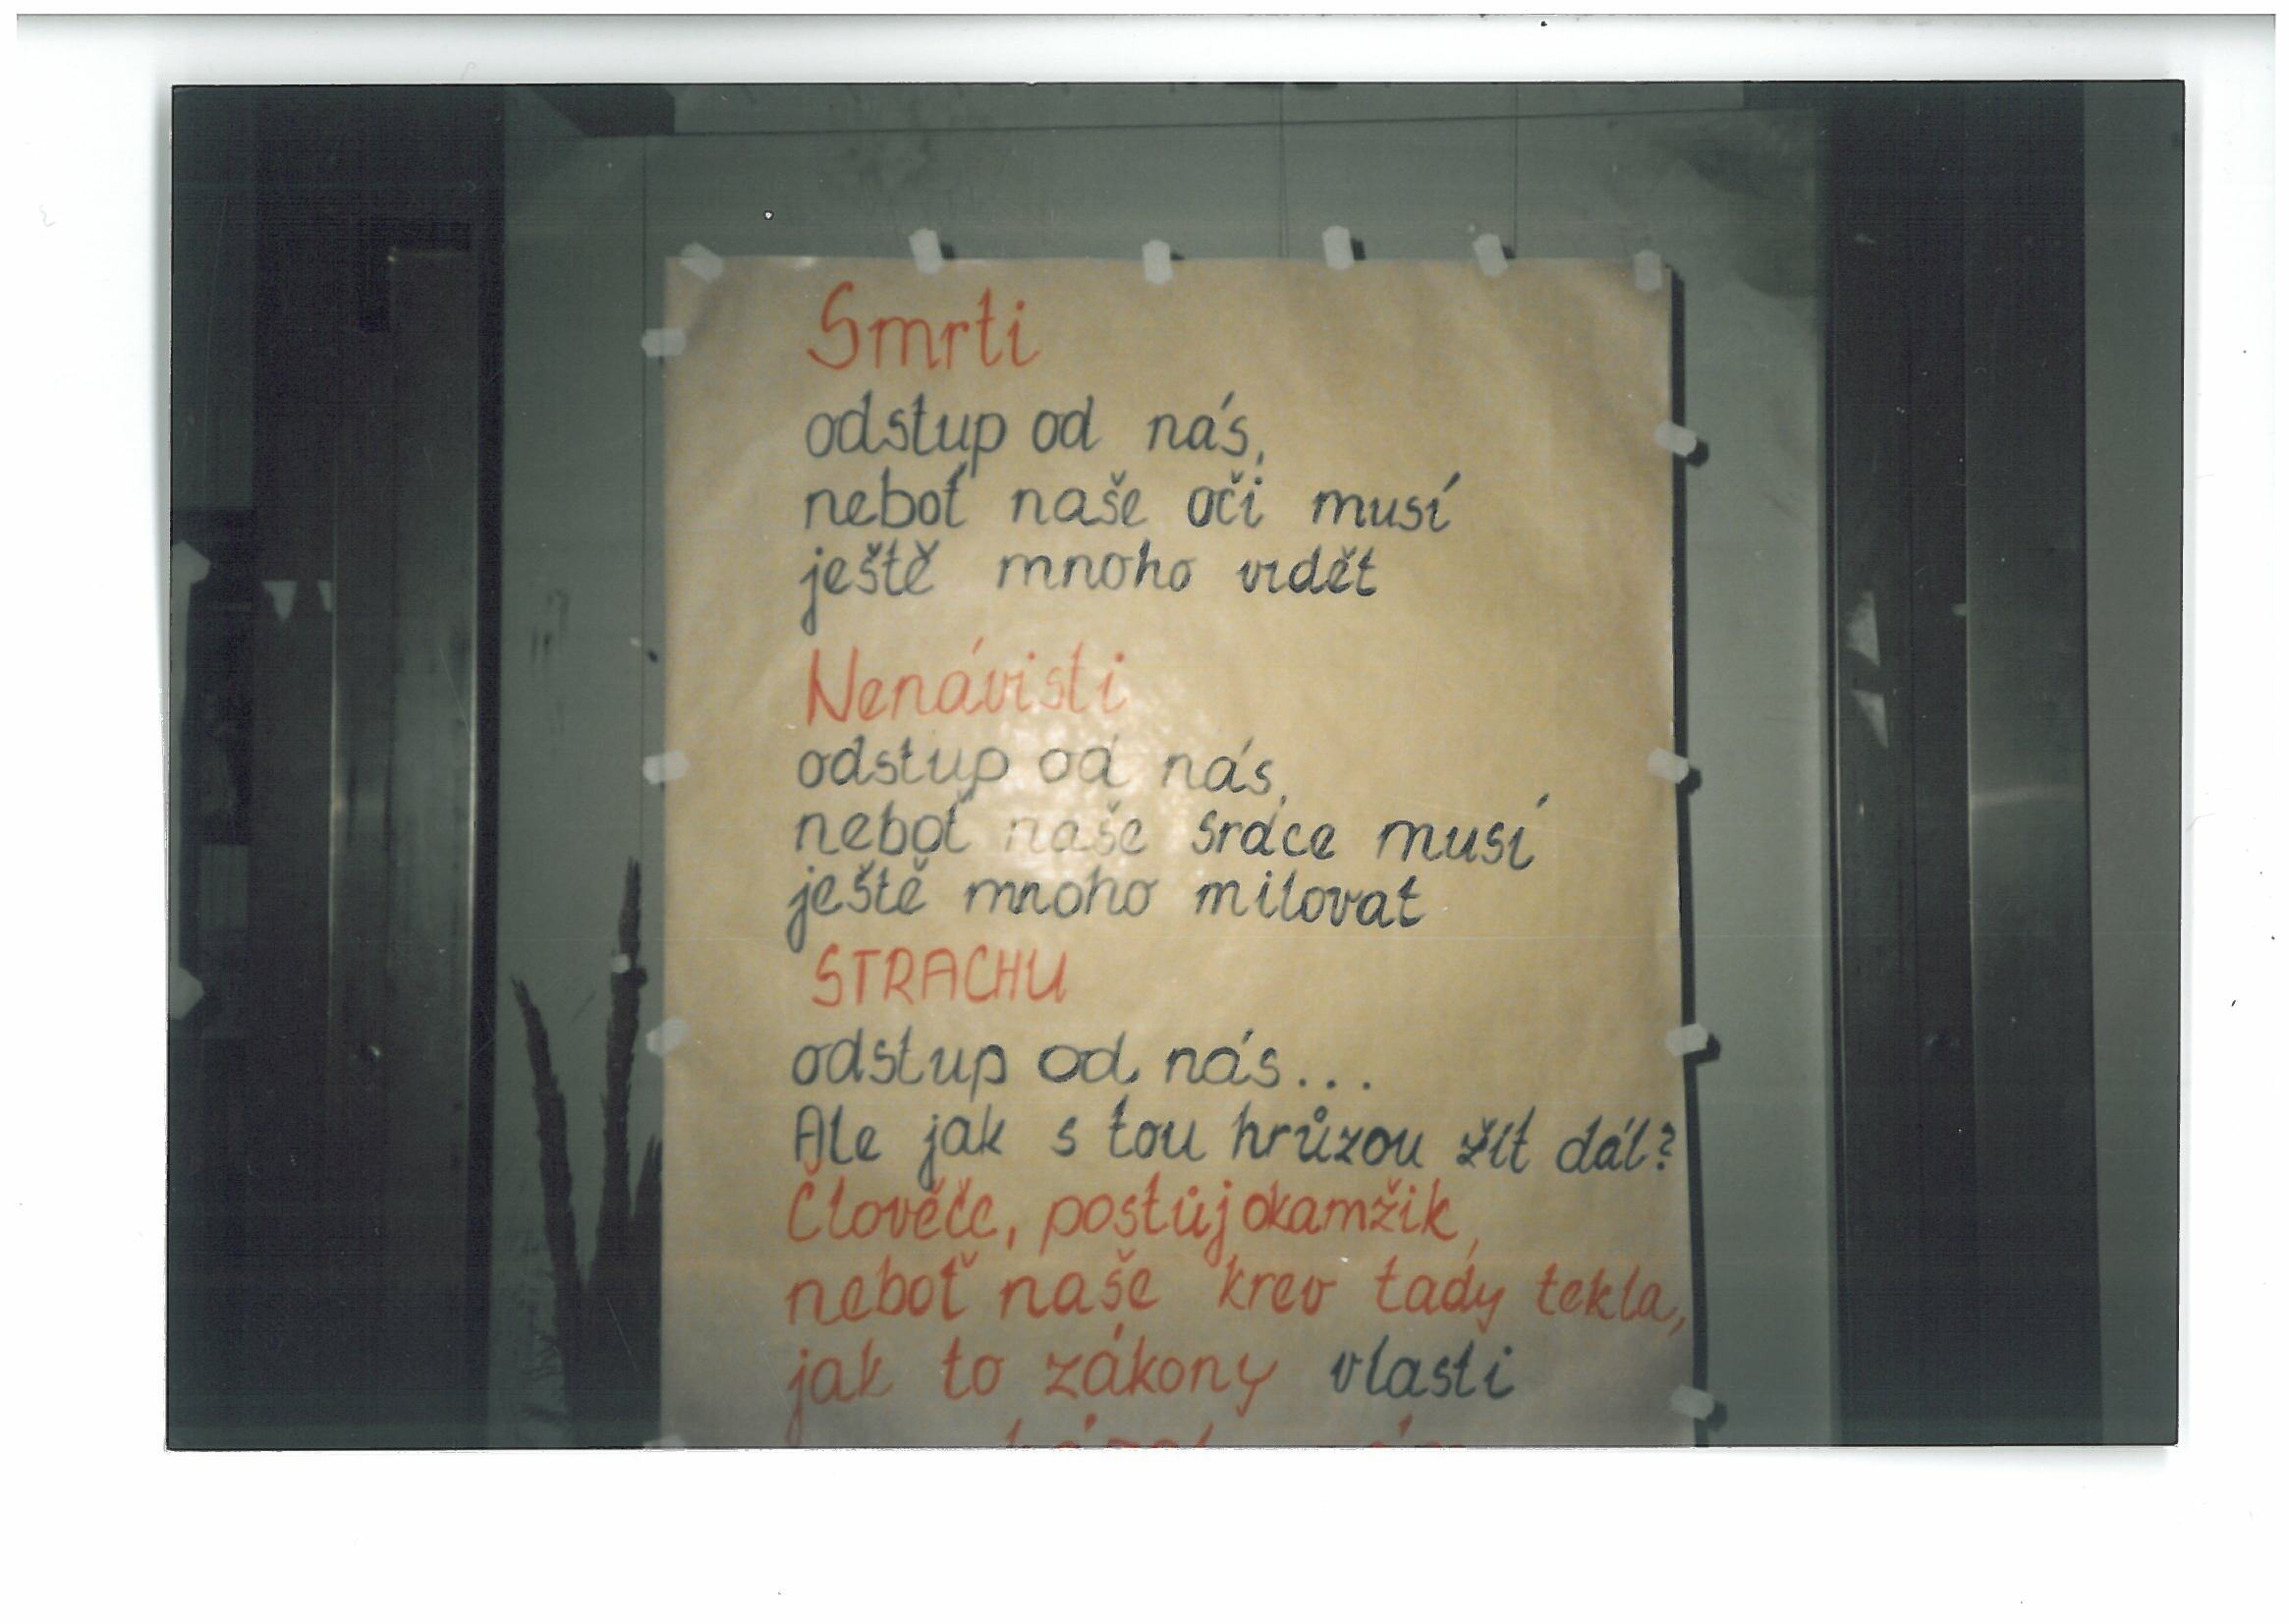 Smrti
odstup od nás,
neboť naše oči musí
ještě mnoho vidět
Nenávisti
odstup od nás,
neboť naše srdce musí
ještě mnoho milovat
STRACHU
odstup od nás...
Ale jak s tou hrůzou žít dál?
Člověče, postůj okamžik,
neboť naše krev tady tekla,
jak to zákony vlasti